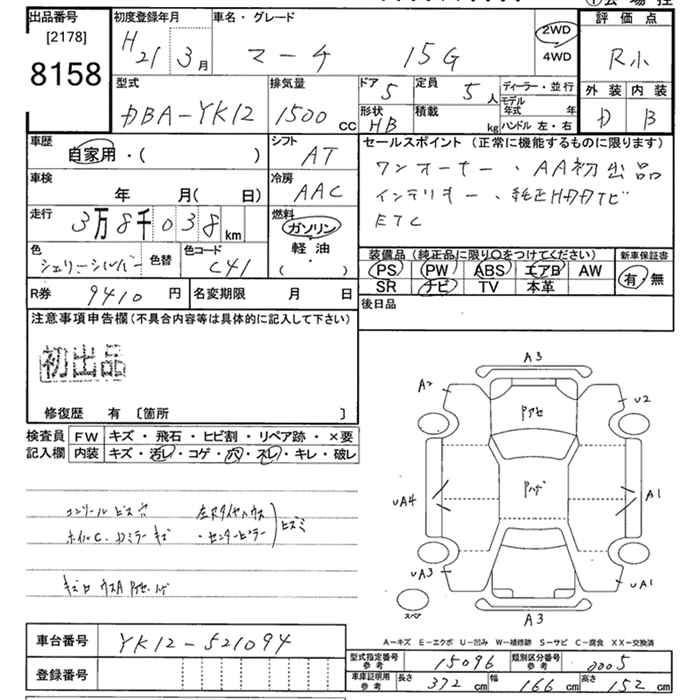 出品番号
[2178]
8158
初度登録年月
H21 3月
車名・グレード
マーチ 15G
2WD
4WD
評価点
R小
外装 内装
D B
型式
DBA-YK12
排気量
1500 CC
ドア 5
形状 HB
定員 5 人
積載 kg
ディーラー・並行
モデル年式 年
ハンドル 左・右
車歴
自家用・( )
シフト
AT
車検
年 月( 日)
冷房
AAC
走行
3万8千038 km
燃料
ガソリン
軽油
( ・ )
色
シェリーシルバー
色替
色コード
C41
R券 9410 円
名変期限 月 日
セールスポイント(正常に機能するものに限ります)
ワンオーナー、AA初出品
インテリキー、純正HDDナビ
ETC
装備品(純正品に限り○をつけてください)
PS PW ABS エアB AW
SR ナビ TV 本革
新車保証書
有・無
後日品
注意事項申告欄(不具合内容等は具体的に記入して下さい)
初出品
修復歴 有 [箇所 ]
検査員記入欄
FW キズ・飛石・ヒビ割・リペア跡・×要
内装 キズ・汚レ・コゲ・穴・スレ・キレ・破レ
コンソール ビス穴
ホイルC. Dミラーキズ
左Rタイヤハウス
・センターピラー
ヒズミ
A3
A2
U2
Pアセ
Pハゲ
UA4
A1
UA3
UA1
スペア
A3
A-キズ E-エクボ U-凹み W-補修跡 S-サビ C-腐食 XX-交換済
車台番号 YK12-521094
登録番号
型式指定番号 参考 15096
類別区分番号 参考 0005
車庫証明用 参考 長さ 372 cm 幅 166 cm 高さ 152 cm